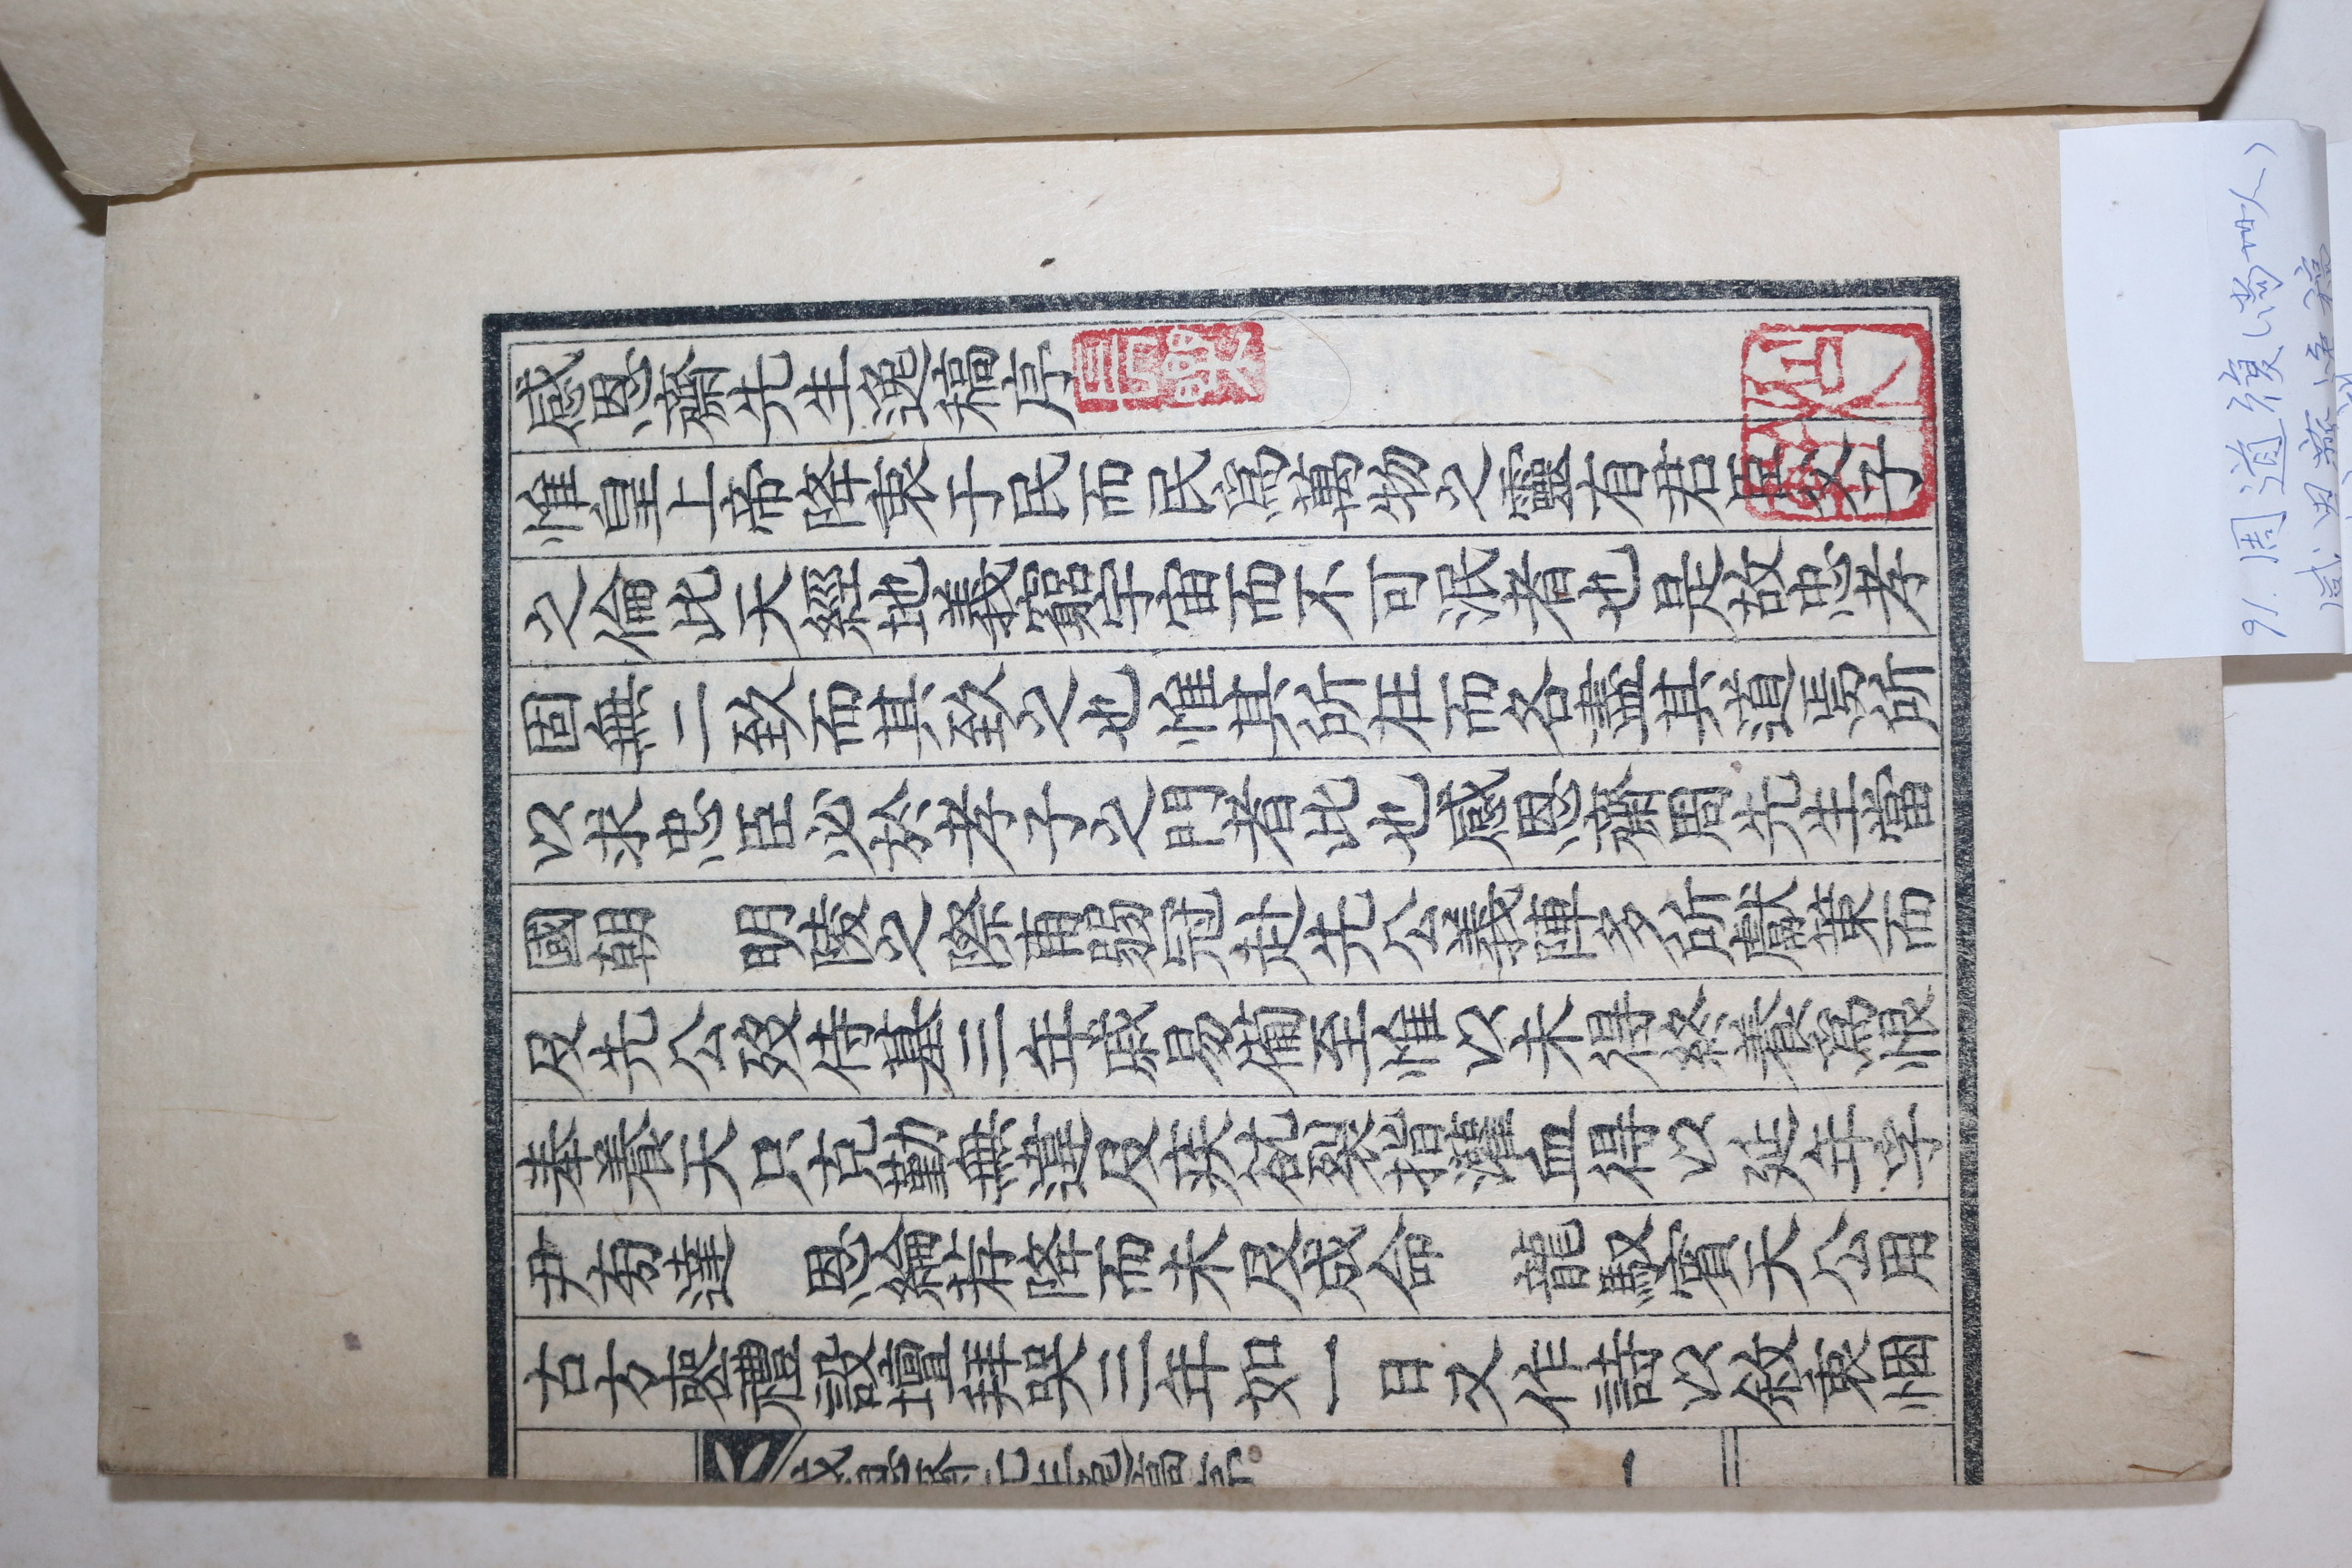 感恩齋先生逸稿序
惟皇上帝降衷于民而民爲萬物之靈有君臣父子
之倫此天經地義窮宇宙而不可泯者也是故忠孝
固無二致而其致之也惟其所在而各盡其道焉所
以求忠臣必於孝子之門者此也感恩齋周先生當
國朝　明陵之際甫弱冠赴先公義陣多所獻策而
及先公歿侍墓三年戚易備至惟以未得終養爲恨
奉養天只克勤無違及疾㞃裂指灌血得以延年孚
尹旁達　恩綸荐降而未及成命　龍馭賓天公用
古方喪禮設壇拜哭三年如一日又作詩以敘衷悃
感恩齋先生逸稿序
一
91. 周道復
感恩齋逸稿